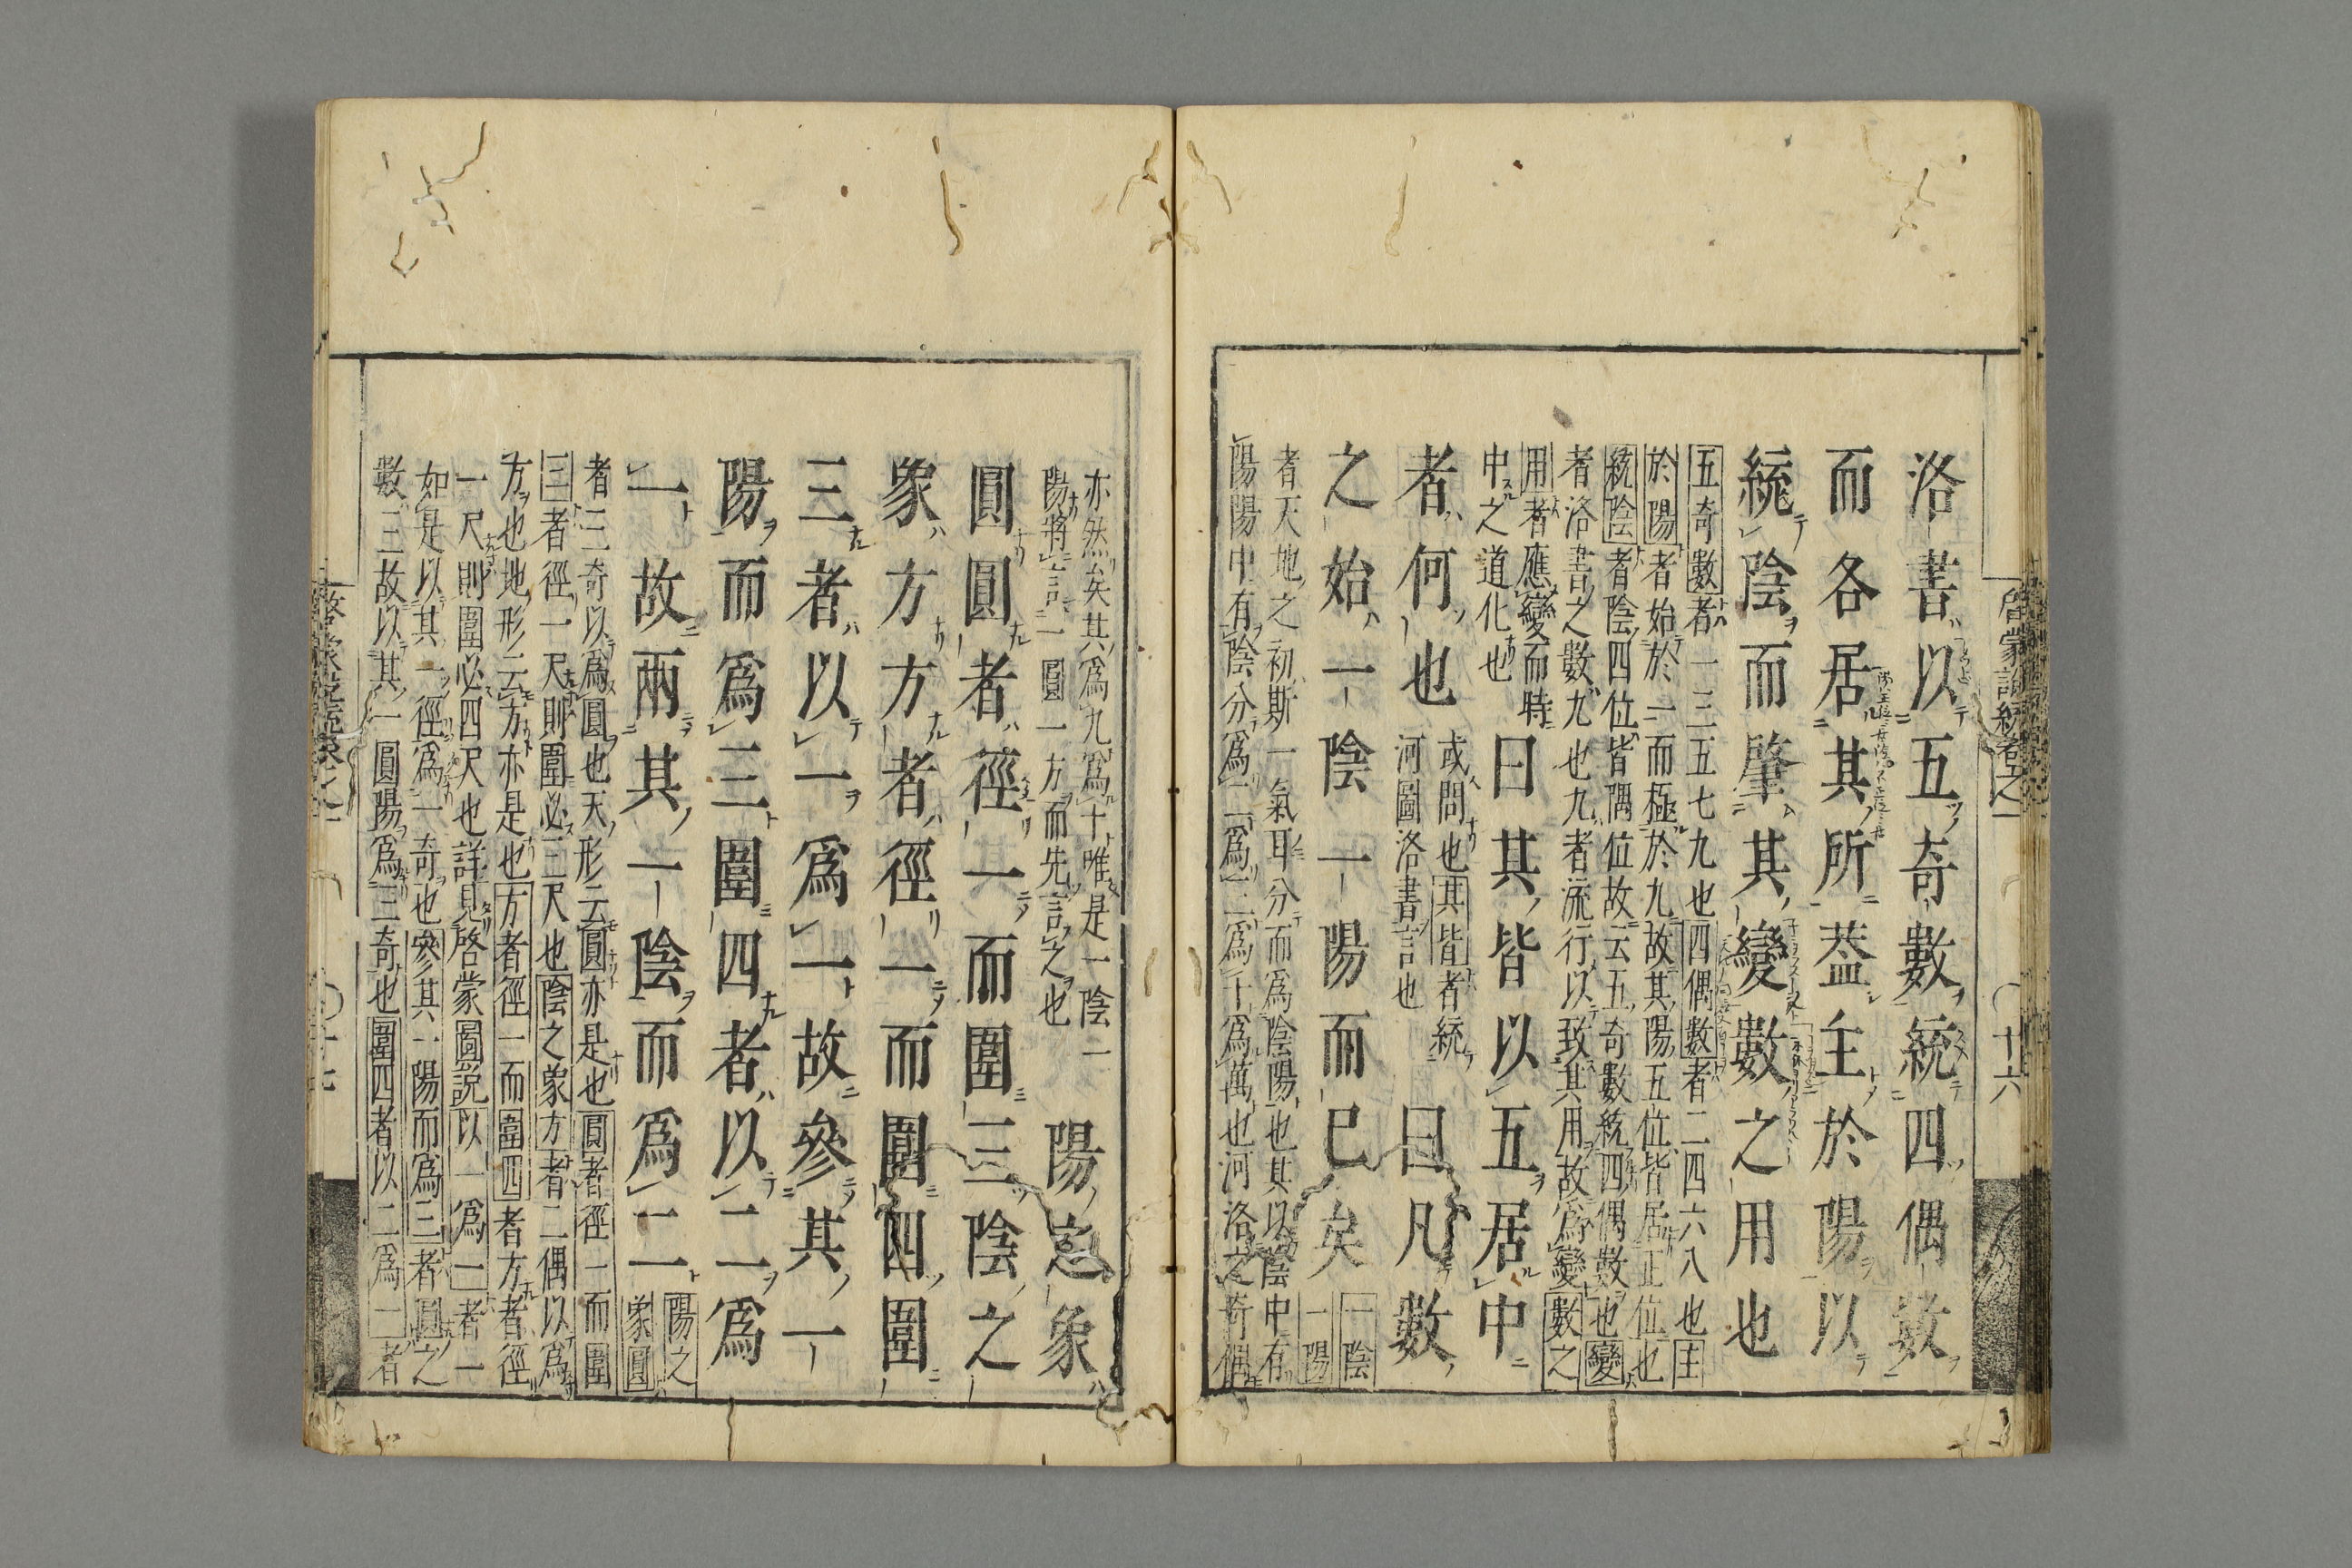 洛書以五奇數統四偶數
而各居其所蓋主於陽以
統陰而肇其變數之用也
五奇數者一三五七九也四偶數者二四六八也主
於陽者始於一而極於九故其陽五位皆居正位也
統陰者陰四位皆隅位故云五奇數統四偶數也變
者洛書之數九也九者流行以致其用故爲變數之
用者應變而時
中之道化也
曰其皆以五居中
者何也
或問也其皆者統
河圖洛書言也
曰凡數
之始一陰一陽而已矣
一陰
一陽
者天地之初斯一氣耳分而爲陰陽也其以陰中有
陽陽中有陰分爲二爲三爲十爲萬也河洛之奇偶
亦然矣其爲九爲十唯是一陰一
陽將言一圓一方而先言之也
陽之象
圓圓者徑一而圍三陰之
象方方者徑一而圍四圍
三者以一爲一故參其一
陽而爲三圍四者以二爲
一故兩其一陰而爲二
陽之
象圓
者三奇以爲圓也天形云圓亦是也圓者徑一而圍
三者徑一尺則圍必三尺也陰之象方者二偶以爲
方也地形云方亦是也方者徑一而圍四者方者徑
一尺則圍必四尺也詳見啓蒙圖説以一爲一者一
如是以其一徑爲一奇也參其一陽而爲三者圓之
數三故以其一圓陽爲三奇也圍四者以二爲一者